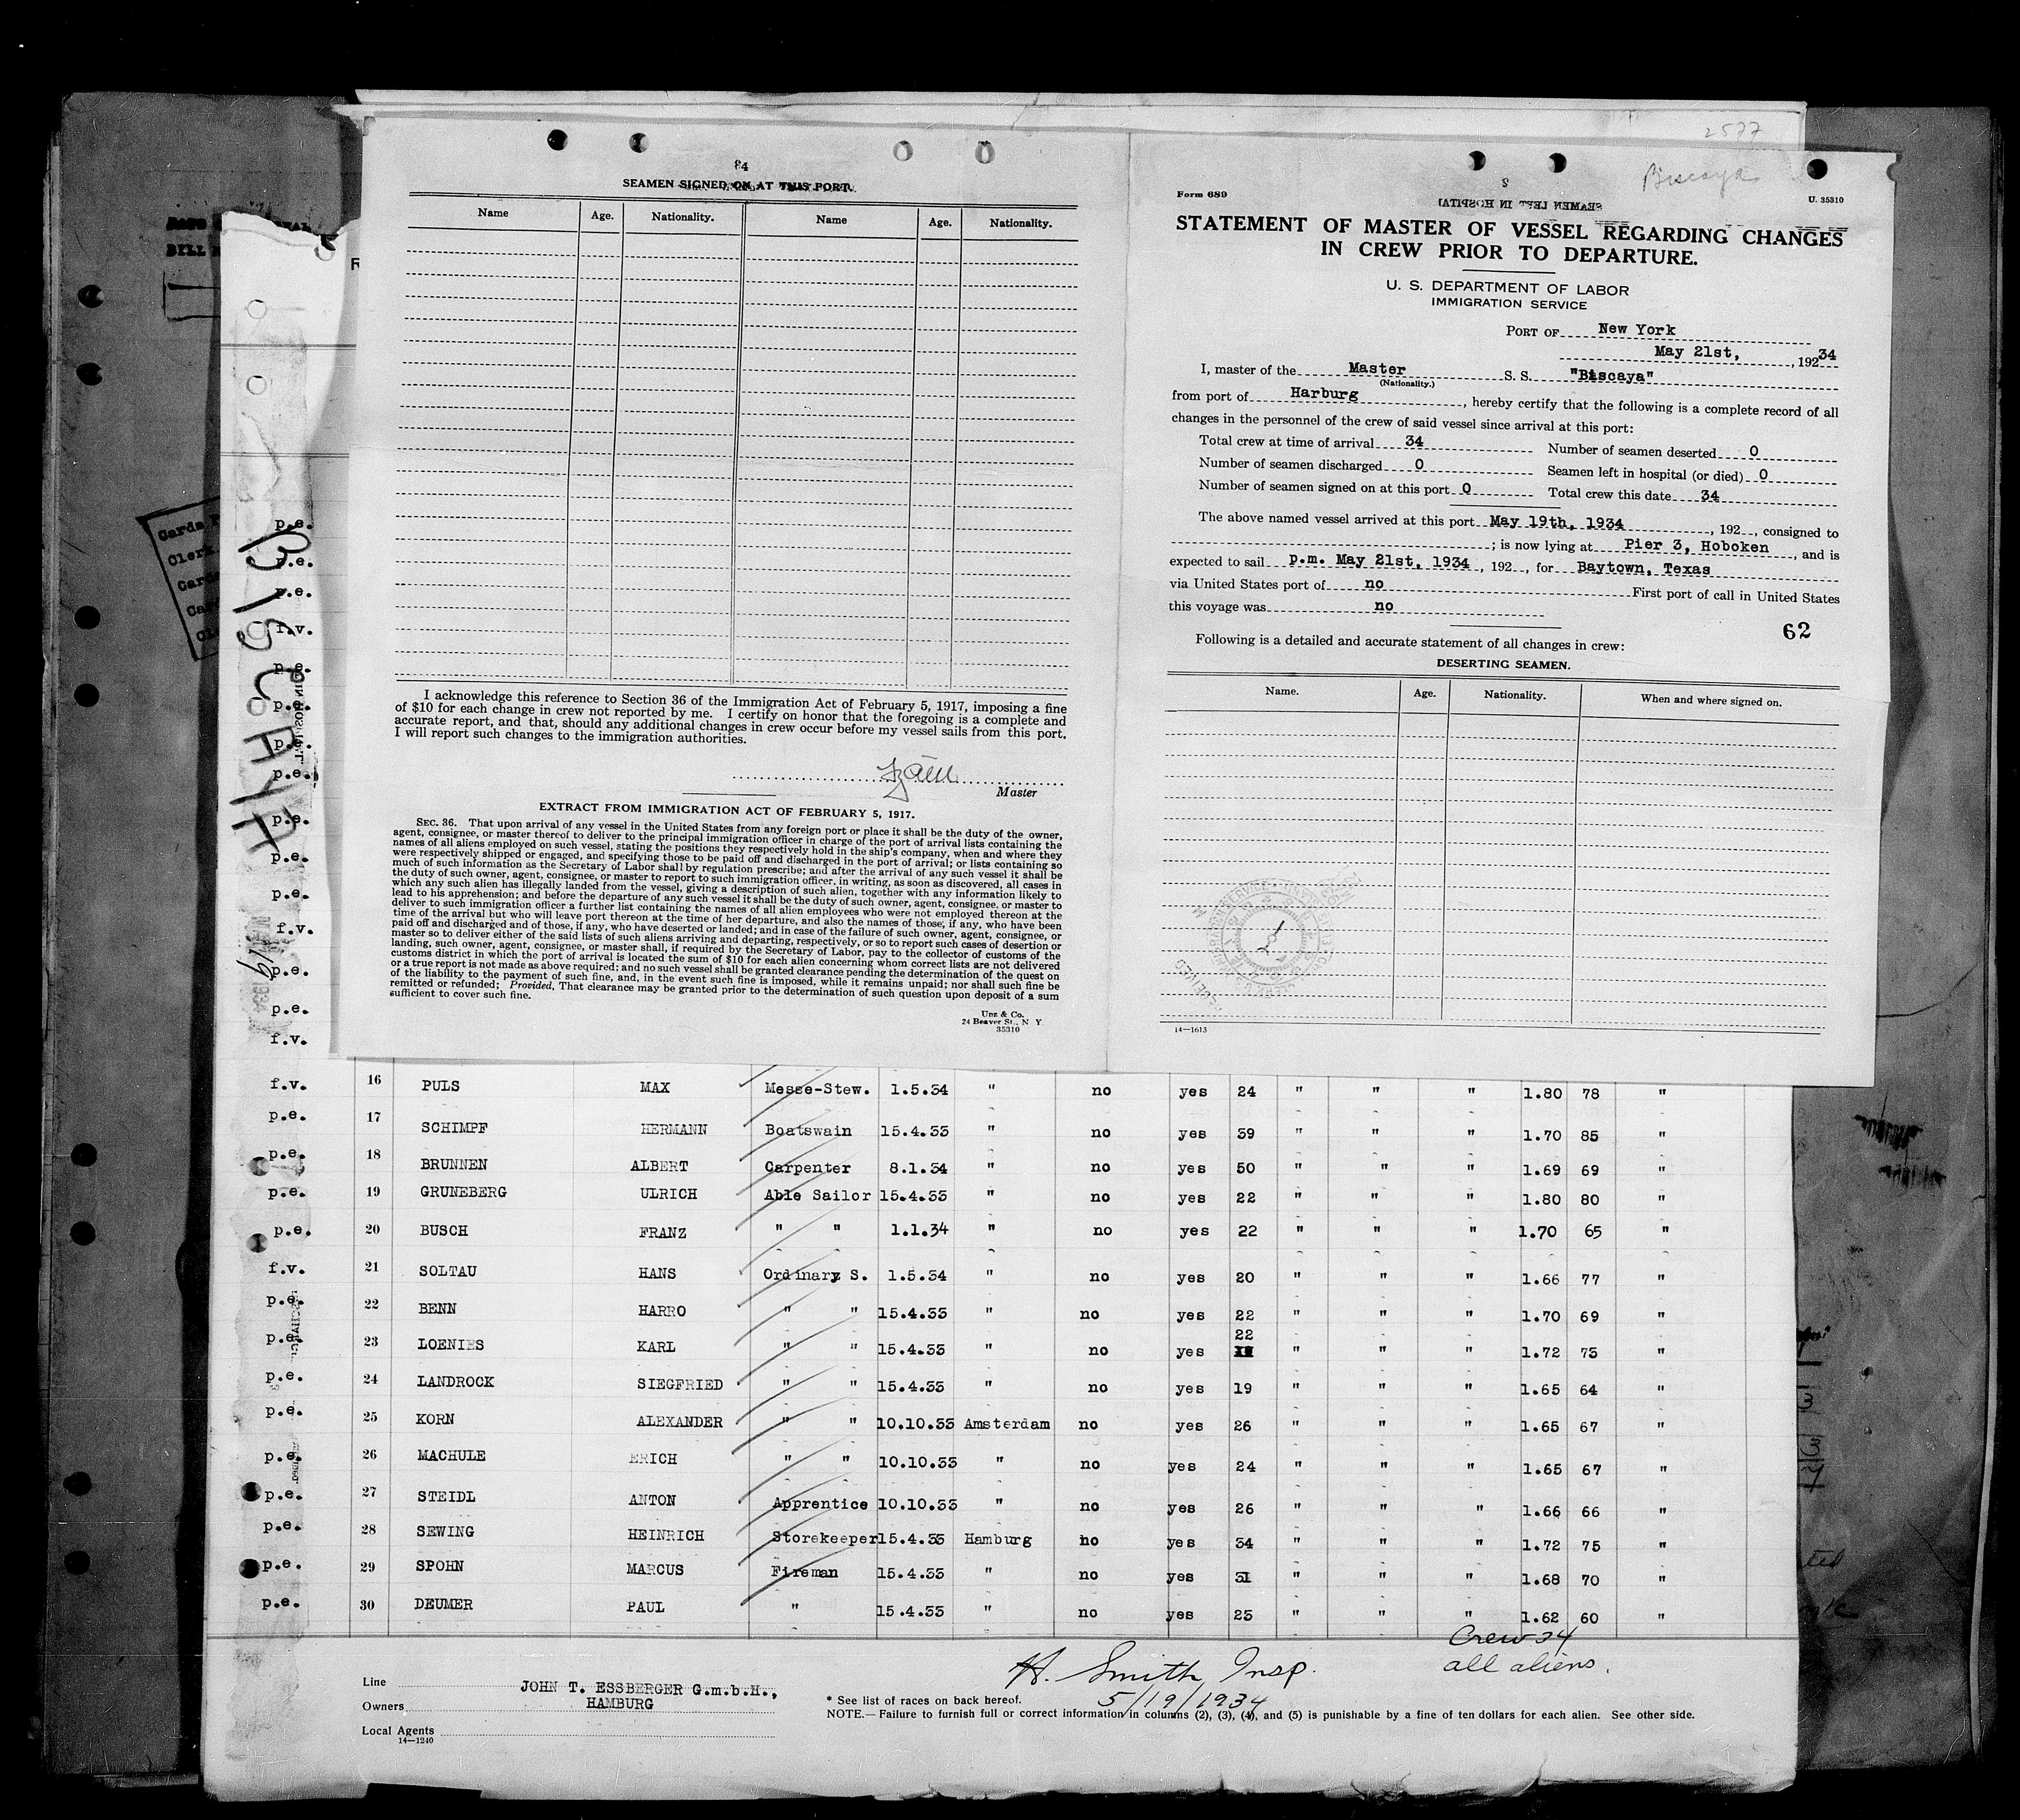 84
SEAMEN SIGNED ON AT THIS PORT.
Name Age. Nationality. Name Age. Nationality.
I acknowledge this reference to Section 36 of the Immigration Act of February 5, 1917, imposing a fine
of $10 for each change in crew not reported by me. I certify on honor that the foregoing is a complete and
accurate report, and that, should any additional changes in crew occur before my vessel sails from this port,
I will report such changes to the immigration authorities.
Master
EXTRACT FROM IMMIGRATION ACT OF FEBRUARY 5, 1917.
SEC. 36. That upon arrival of any vessel in the United States from any foreign port or place it shall be the duty of the owner,
agent, consignee, or master thereof to deliver to the principal immigration officer in charge of the port of arrival lists containing the
names of all aliens employed on such vessel, stating the positions they respectively hold in the ship's company, when and where they
were respectively shipped or engaged, and specifying those to be paid off and discharged in the port of arrival; or lists containing so
much of such information as the Secretary of Labor shall by regulation prescribe; and after the arrival of any such vessel it shall be
the duty of such owner, agent, consignee, or master to report to such immigration officer, in writing, as soon as discovered, all cases in
which any such alien has illegally landed from the vessel, giving a description of such alien, together with any information likely to
lead to his apprehension; and before the departure of any such vessel it shall be the duty of such owner, agent, consignee. or master to
deliver to such immigration officer a further list containing the names of all alien employees who were not employed thereon at the
time of the arrival but who will leave port thereon at the time of her departure, and also the names of those, if any, who have been
paid off and discharged and of those, if any, who have deserted or landed; and in case of the failure of such owner, agent, consignee, or
master so to deliver either of the said lists of such aliens arriving and departing, respectively, or so to report such cases of desertion or
landing, such owner, agent, consignee, or master shall, if required by the Secretary of Labor, pay to the collector of customs of the
customs district in which the port of arrival is located the sum of $10 for each alien concerning whom correct lists are not delivered
or a true report is not made as above required; and no such vessel shall be granted clearance pending the determination of the quest on
of the liability to the payment of such fine, and, in the event such fine is imposed, while it remains unpaid; nor shall such fine be
remitted or refunded; Provided, That clearance may be granted prior to the determination of such question upon deposit of a sum
sufficient to cover such fine.
Unz & Co.
24 Beaver St., N Y
35310
2577
Biscaya
Form 689
U. 35310
SEAMEN LEFT IN HOSPITAL
STATEMENT OF MASTER OF VESSEL REGARDING CHANGES
IN CREW PRIOR TO DEPARTURE.
U. S. DEPARTMENT OF LABOR
IMMIGRATION SERVICE
PORT OF New York
May 21st, , 192 34
I, master of the Master S. S. "Biscaya"
(Nationality.)
from port of Harburg , hereby certify that the following is a complete record of all
changes in the personnel of the crew of said vessel since arrival at this port:
Total crew at time of arrival 34 Number of seamen deserted 0
Number of seamen discharged 0 Seamen left in hospital (or died) 0
Number of seamen signed on at this port 0 Total crew this date 34
The above named vessel arrived at this port May 19th, 1934 , 192 , consigned to
; is now lying at Pier 3, Hoboken , and is
expected to sail p.m. May 21st, 1934 , 192 , for Baytown, Texas
via United States port of no First port of call in United States
this voyage was no
62
Following is a detailed and accurate statement of all changes in crew:
DESERTING SEAMEN.
Name. Age. Nationality. When and where signed on.
14—1613
BISCAYA
p.e.
p.e.
p.e.
f.v.
p.e.
p.e.
p.e.
p.e.
p.e.
p.e.
p.e.
f.v.
p.e.
p.e.
f.v.
f.v. 16 PULS MAX Messe-Stew. 1.5.34 " no yes 24 " " " 1.80 78 "
p.e. 17 SCHIMPF HERMANN Boatswain 15.4.33 " no yes 39 " " " 1.70 85 "
p.e. 18 BRUNNEN ALBERT Carpenter 8.1.34 " no yes 50 " " " 1.69 69 "
p.e. 19 GRUNEBERG ULRICH Able Sailor 15.4.33 " no yes 22 " " " 1.80 80 "
p.e. 20 BUSCH FRANZ " " 1.1.34 " no yes 22 " " " 1.70 65 "
f.v. 21 SOLTAU HANS Ordinary S. 1.5.34 " no yes 20 " " " 1.66 77 "
p.e. 22 BENN HARRO " " 15.4.33 " no yes 22 " " " 1.70 69 "
p.e. 23 LOENIES KARL " " 15.4.33 " no yes 22 " " " 1.72 75 "
p.e. 24 LANDROCK SIEGFRIED " " 15.4.33 " no yes 19 " " " 1.65 64 "
p.e. 25 KORN ALEXANDER " " 10.10.33 Amsterdam no yes 26 " " " 1.65 67 "
p.e. 26 MACHULE ERICH " " 10.10.33 " no yes 24 " " " 1.65 67 "
p.e. 27 STEIDL ANTON Apprentice 10.10.33 " no yes 26 " " " 1.66 66 "
p.e. 28 SEWING HEINRICH Storekeeper 15.4.33 Hamburg no yes 34 " " " 1.72 75 "
p.e. 29 SPOHN MARCUS Fireman 15.4.33 " no yes 31 " " " 1.68 70 "
p.e. 30 DEUMER PAUL " 15.4.33 " no yes 23 " " " 1.62 60 "
Crew 34
all aliens.
H. Smith Insp.
5/19/1934
Line JOHN T. ESSBERGER G.m.b.H.,
Owners HAMBURG
Local Agents
14—1240
* See list of races on back hereof.
NOTE.— Failure to furnish full or correct information in columns (2), (3), (4), and (5) is punishable by a fine of ten dollars for each alien. See other side.